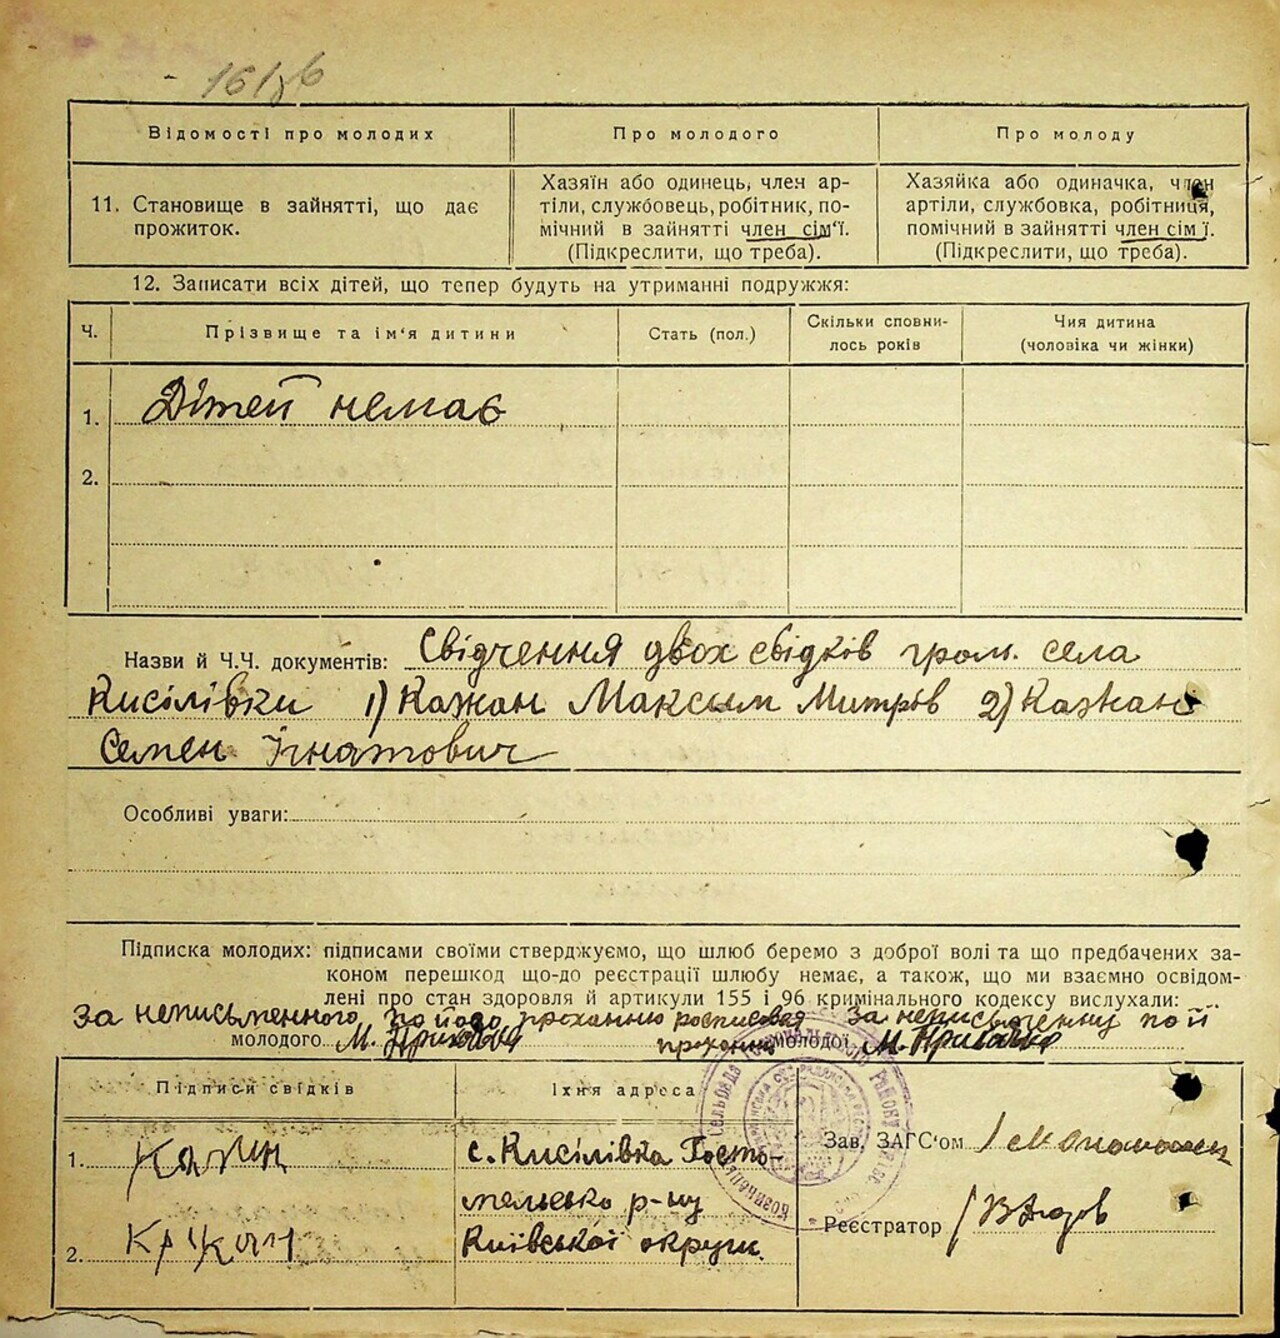 Відомості про молодих Про молодого Про молоду
11. Становище в зайнятті, що дає прожиток.
Хазяїн або одинець, член ар-
тіли, службовець, робітник, по-
мічний в зайнятті член сім'ї.
(Підкреслити, що треба).
Хазяйка або одиначка, член
артіли, службовка, робітниця,
помічний в зайнятті член сім'ї.
(Підкреслити, що треба).
12. Записати всіх дітей, що тепер будуть на утриманні подружжя:
Ч. Прізвище та ім'я дитини Стать (пол.) Скільки сповни-
лось років Чия дитина
(чоловіка чи жінки)
1. Дітей немає
2.
Назви й Ч.Ч. документів: Свідчення двох свідків гром. села
Кисілівки 1) Кажан Максим Митрів 2) Кажан
Семен Ігнатович
Особливі уваги:
Підписка молодих: підписами своїми стверджуємо, що шлюб беремо з доброї волі та що предбачених за-
коном перешкод що-до реєстрації шлюбу немає, а також, що ми взаємно освідом-
лені про стан здоров'я й артикули 155 і 96 кримінального кодексу вислухали:
За неписьменного по його проханню росписався За неписьменну по її
молодого М. проханню молодої М.
Підписи свідків Їхня адреса
1. с. Кисілівка Госто-
мельсько р-ну
2. Київської округи.
Зав. ЗАГС'ом
Реєстратор